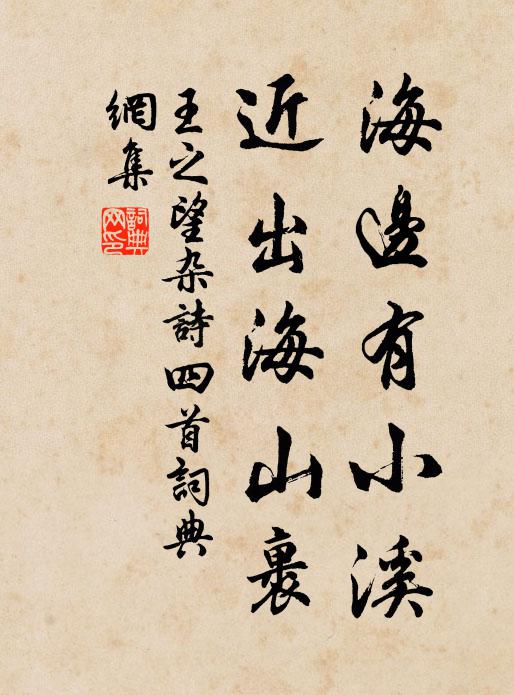 海邊有小溪
近出海山裏
王之望杂詩四首詞典
網集
詞典
网印